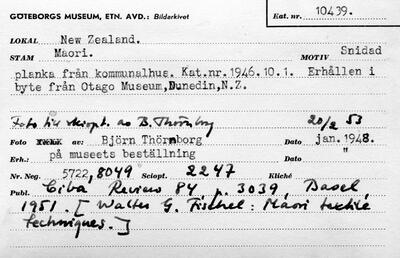 GÖTEBORGS MUSEUM, ETN. AVD.: Bildarkivet
Kat. nr. 10439.
LOKAL New Zealand.
STAM Maori. MOTIV Snidad
planka från kommunalhus. Kat.nr.1946.10.1. Erhållen i
byte från Otago Museum, Dunedin, N.Z.
Foto till skiopt. av B. Thörnborg 20/2 53
Foto av: Björn Thörnborg Dato jan. 1948.
Erh.: på museets beställning Dato "
Nr. Neg. 5722, 8049 Sciopt. 2247 Kliché
Publ. Ciba Review 84 p. 3039 Basel
1951. [Walter G. Fischel: Maori textile
techniques.]